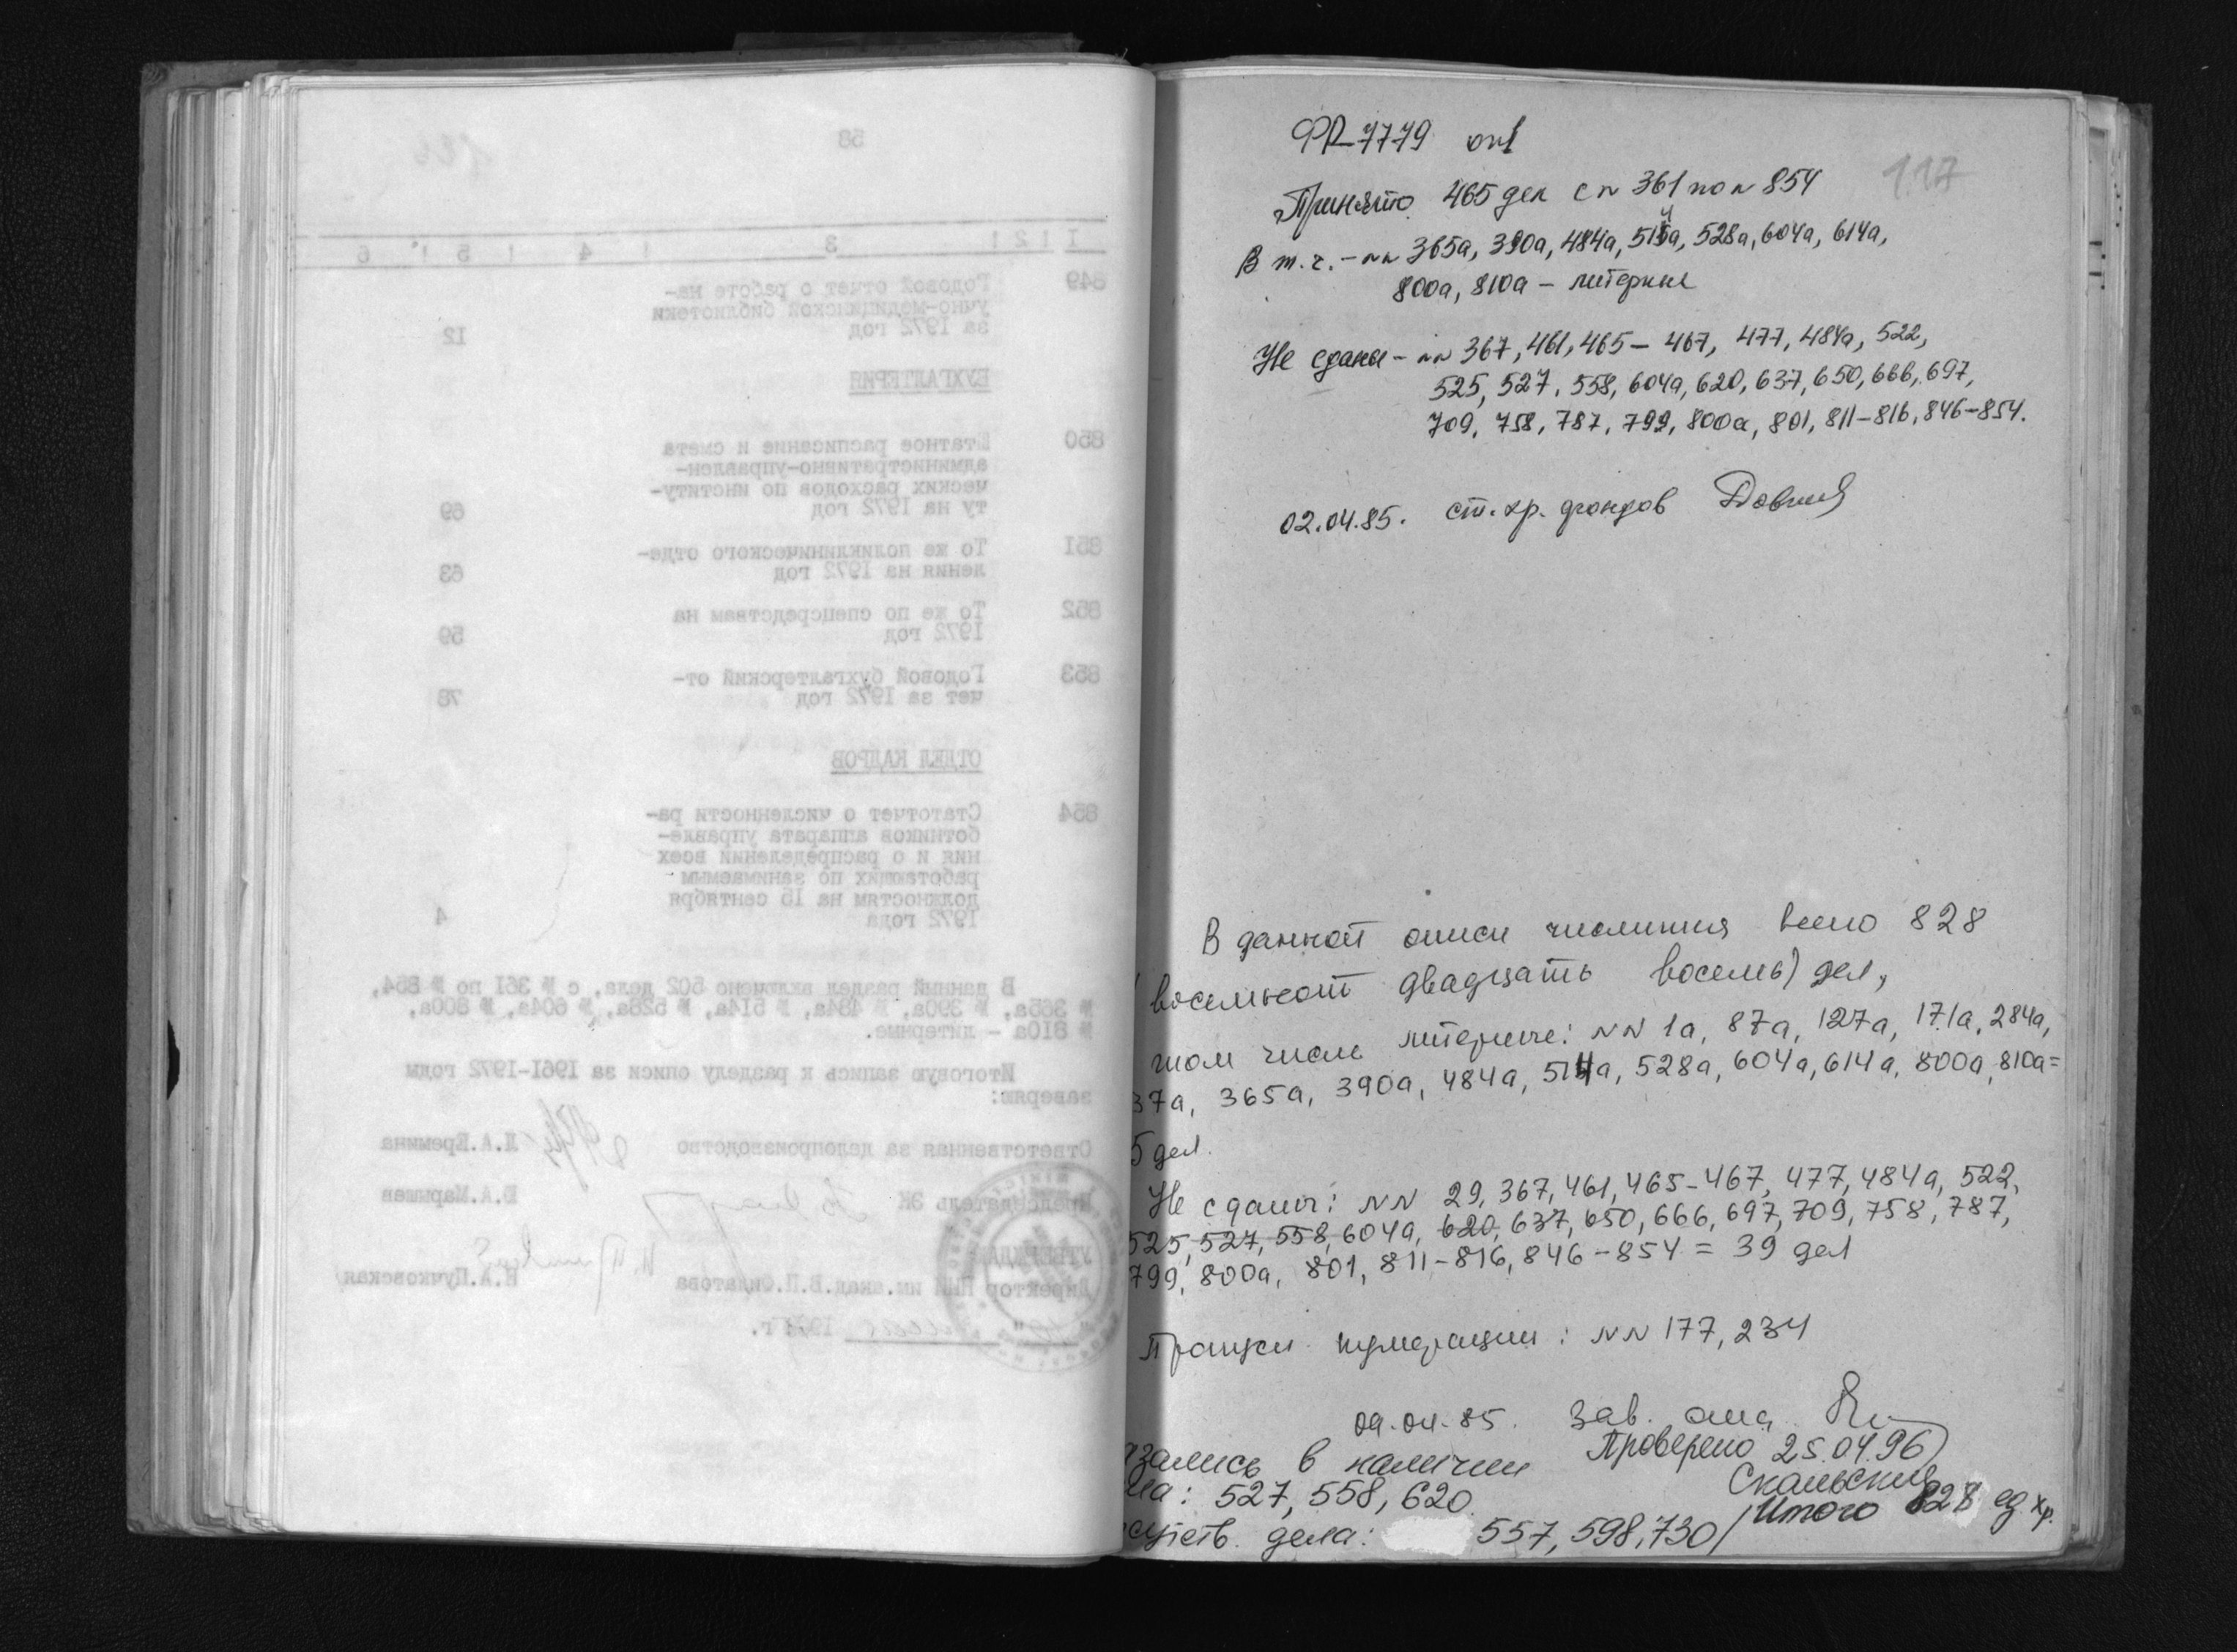 58
I ! 2 ! 3 ! 4 ! 5 ! 6
849 Годовой отчет о работе на-
учно-медицинской библиотеки
за 1972 год 12
БУХГАЛТЕРИЯ
850 Штатное расписание и смета
административно-управлен-
ческих расходов по институ-
ту на 1972 год 69
851 То же поликлинического отде-
ления на 1972 год 63
852 То же по спецсредствам на
1972 год 59
853 Годовой бухгалтерский от-
чет за 1972 год 78
ОТДЕЛ КАДРОВ
854 Статотчет о численности ра-
ботников аппарата управле-
ния и о распределении всех
работающих по занимаемым
должностям на 15 сентября
1972 года 4
В данный раздел включено 502 дела, с № 361 по № 854,
№ 365а, № 390а, № 484а, № 514а, № 528а, № 604а, № 800а,
№ 810а – литерные.
Итоговую запись к разделу описи за 1961-1972 годы
заверяю:
Ответственная за делопроизводство Л.А.Еремина
Председатель ЭК Ю.А.Марышев
УТВЕРЖДАЮ
Директор им.акад.В.П.Филатова Н.А.Пучковская
ФР-7779 оп1
117
Принято 465 дел с № 361 по № 854
В т.ч. – №№ 365а, 390а, 484а, 514а, 528а, 604а, 614а,
800а, 810а – литерные
Не сданы – №№ 367, 461, 465 – 467, 477, 484а, 522,
525, 527, 558, 604а, 620, 637, 650, 666, 697,
709, 758, 787, 799, 800а, 801, 811–816, 846–854.
02.04.85. ст. хр. фондов
В данной описи числится всего 828
(восемьсот двадцать восемь) дел,
том числе литерные: №№ 1а, 87а, 127а, 171а, 284а,
37а, 365а, 390а, 484а, 514а, 528а, 604а, 614а, 800а, 810а =
5 дел.
Не сданы: №№ 29, 367, 461, 465–467, 477, 484а, 522,
525, 527, 558, 604а, 620, 637, 650, 666, 697, 709, 758, 787,
799, 800а, 801, 811–816, 846–854 = 39 дел
Пропуски нумерации: №№ 177, 234
09.04.85. зав. отд.
Проверено 25.04.96
зались в наличии
Скальский
ла: 527, 558, 620
Итого 828 ед.хр.
сутств. дела: 557, 598, 730